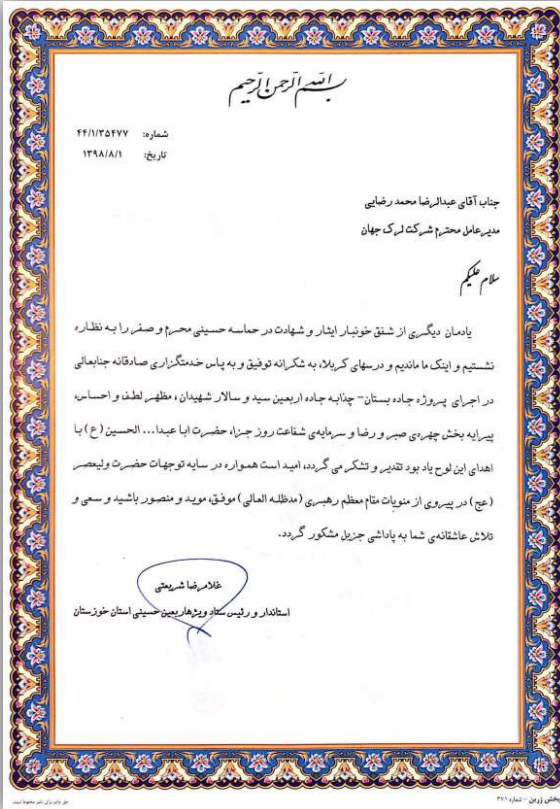 بسم الله الرحمن الرحیم
شماره: ۴۴/۱/۳۵۴۷۷
تاریخ: ۱۳۹۸/۸/۱
جناب آقای عبدالرضا محمد رضایی
مدیرعامل محترم شرکت لرک جهان
سلام علیکم
یادمان دیگری از شفق خونبار ایثار و شهادت در حماسه حسینی محرم و صفر را به نظاره
نشستیم و اینک ما ماندیم و درسهای کربلا، به شکرانه توفیق و به پاس خدمتگزاری صادقانه جنابعالی
در اجرای پروژه جاده بستان- چذابه جاده اربعین سید و سالار شهیدان، مظهر لطف و احساس،
پیرایه بخش چهره‌ی صبر و رضا و سرمایه‌ی شفاعت روز جزا، حضرت ابا عبدا... الحسین (ع) با
اهدای این لوح یاد بود تقدیر و تشکر می گردد، امید است همواره در سایه توجهات حضرت ولیعصر
(عج) در پیروی از منویات مقام معظم رهبری (مدظله العالی) موفق، موید و منصور باشید و سعی و
تلاش عاشقانه‌ی شما به پاداشی جزیل مشکور گردد.
غلامرضا شریعتی
استاندار و رئیس ستاد ویژه اربعین حسینی استان خوزستان
پخش زرین - شماره ۲۷۱
حق چاپ برای ناشر محفوظ است.